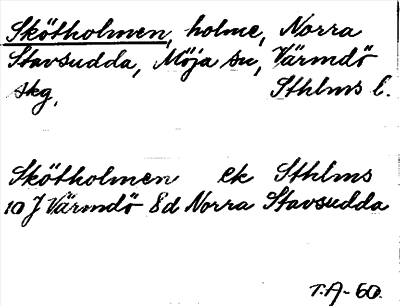 Skötholmen, holme, Norra
Stavsudda, Möja sn, Värmdö
skg, Sthlms l.
Skötholmen ek Sthlms
10 J Värmdö 8d Norra Stavsudda
T.A-60.